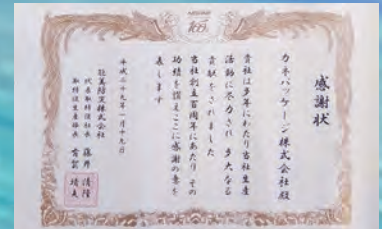 感謝状
カネパッケージ株式会社殿
貴社は多年にわたり当社生産
活動に尽力され多大なる
貢献をされました
当社創立百周年にあたりその
功績を讃えここに感謝の意を
表します
平成二十九年一月十九日
株式会社
代表取締役社長 藤井 清隆
取締役生産